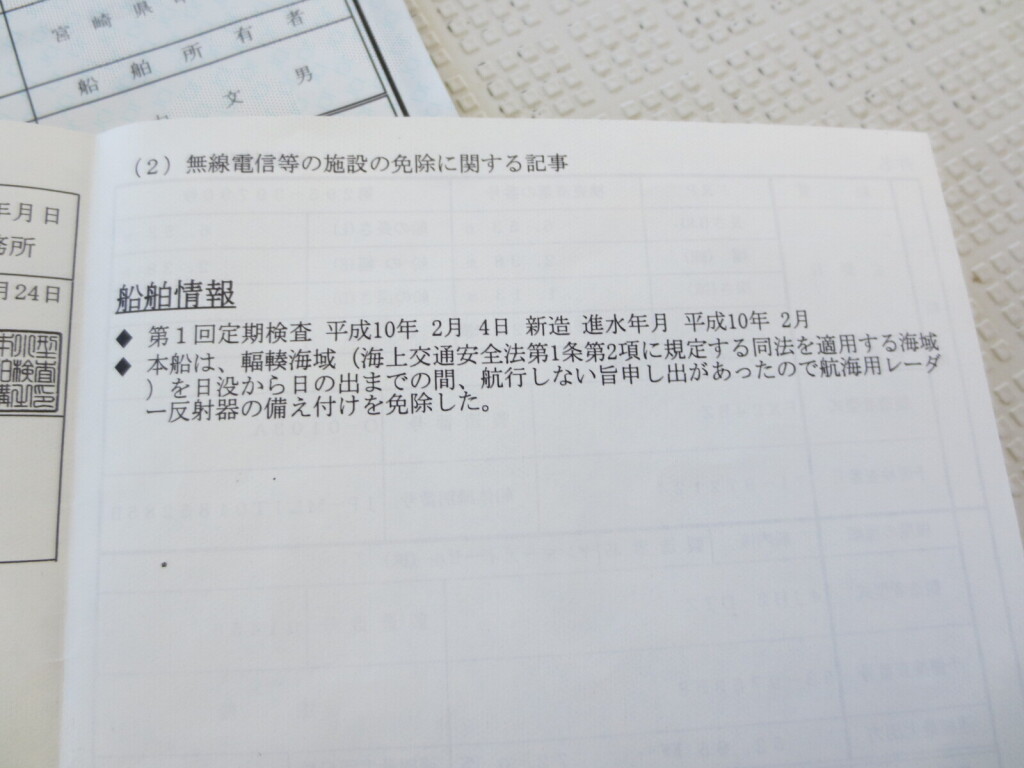 宮崎県
船舶所有者
文男
年月日
務所
月24日
(2)無線電信等の施設の免除に関する記事
船舶情報
◆ 第1回定期検査 平成10年 2月 4日 新造 進水年月 平成10年 2月
◆ 本船は、輻輳海域(海上交通安全法第1条第2項に規定する同法を適用する海域
)を日没から日の出までの間、航行しない旨申し出があったので航海用レーダ
ー反射器の備え付けを免除した。